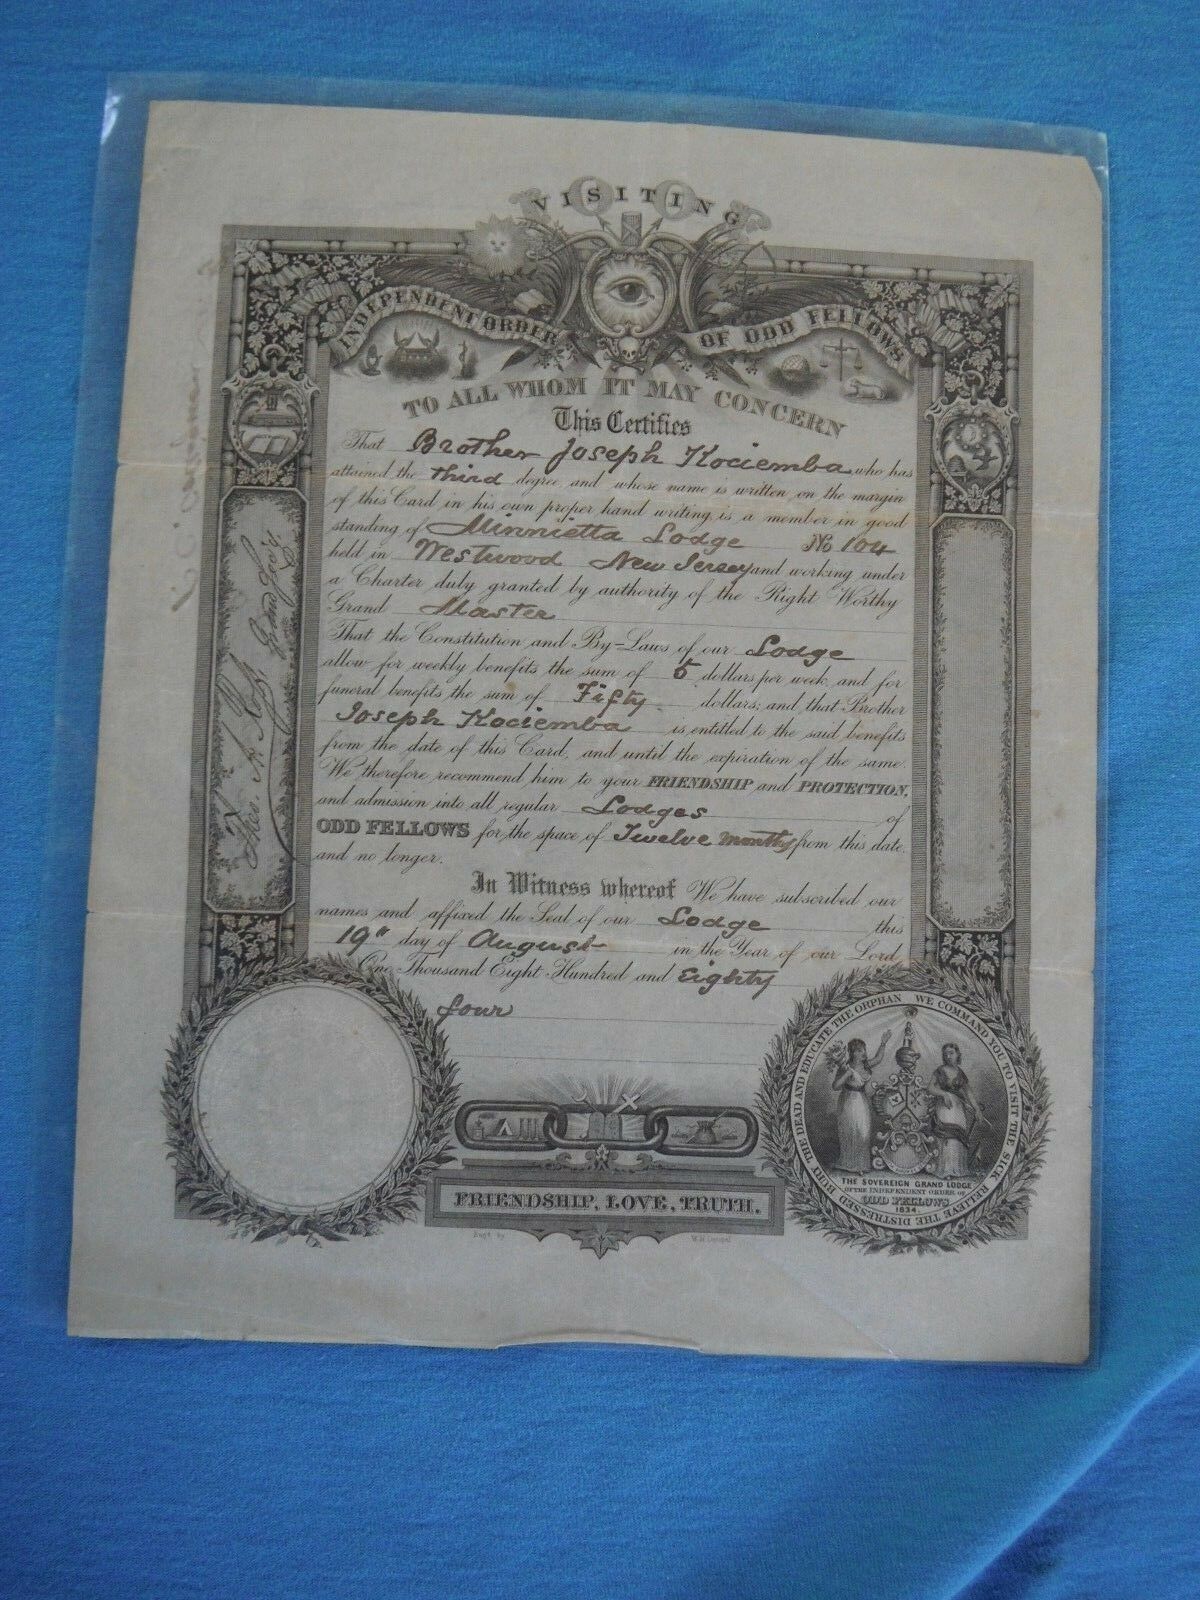 VISITING
INDEPENDENT ORDER OF ODD FELLOWS
TO ALL WHOM IT MAY CONCERN
This Certifies
That Brother Joseph Kociemba who has
attained the third degree and whose name is written on the margin
of this Card in his own proper hand writing is a member in good
standing of Minnietta Lodge No 104
held in Westwood New Jersey and working under
a Charter duly granted by authority of the Right Worthy
Grand Master
That the Constitution and By-Laws of our Lodge
allow for weekly benefits the sum of 5 dollars per week, and for
funeral benefits the sum of Fifty dollars; and that Brother
Joseph Kociemba is entitled to the said benefits
from the date of this Card, and until the expiration of the same.
We therefore recommend him to your FRIENDSHIP and PROTECTION,
and admission into all regular Lodges of
ODD FELLOWS for the space of Twelve months from this date
and no longer.
In Witness whereof We have subscribed our
names and affixed the Seal of our Lodge this
19" day of August in the Year of our Lord
One Thousand Eight Hundred and Eighty
four
Grand Secy.
FRIENDSHIP, LOVE, TRUTH.
Engd. by
WE COMMAND YOU TO VISIT THE SICK RELIEVE THE DISTRESSED BURY THE DEAD AND EDUCATE THE ORPHAN
THE SOVEREIGN GRAND LODGE
OF THE INDEPENDENT ORDER OF
ODD FELLOWS
1834.